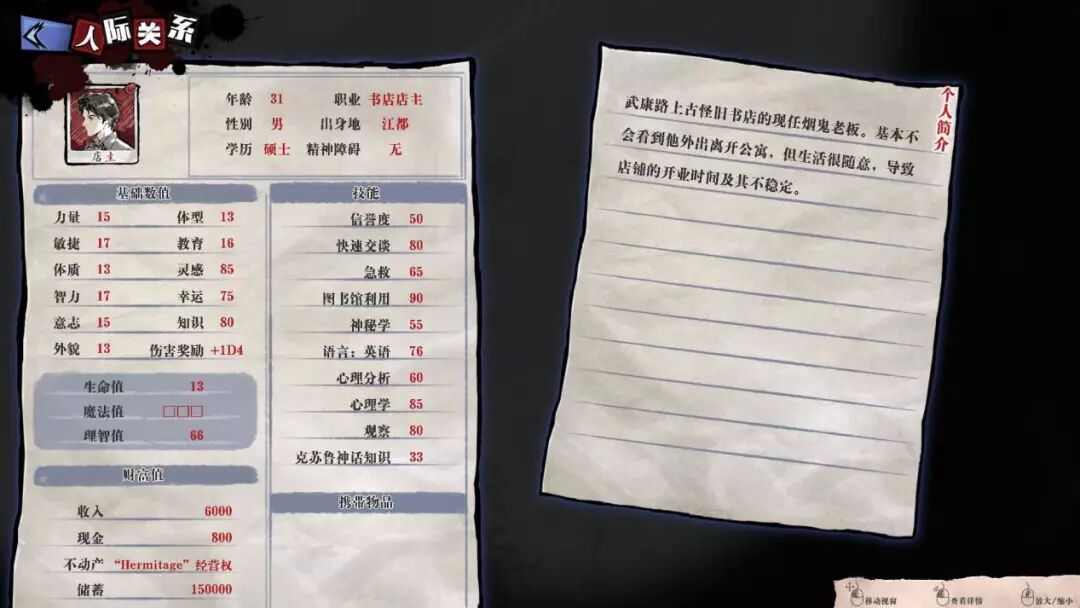 人际关系
店主
年龄 31 职业 书店店主
性别 男 出身地 江都
学历 硕士 精神障碍 无
基础数值
力量 15 体型 13
敏捷 17 教育 16
体质 13 灵感 85
智力 17 幸运 75
意志 15 知识 80
外貌 13 伤害奖励 +1D4
生命值 13
魔法值 □□□
理智值 66
财富值
收入 6000
现金 800
不动产 “Hermitage”经营权
储蓄 150000
技能
信誉度 50
快速交谈 80
急救 65
图书馆利用 90
神秘学 55
语言：英语 76
心理分析 60
心理学 85
观察 80
克苏鲁神话知识 33
携带物品
个人简介
武康路上古怪旧书店的现任烟鬼老板。基本不
会看到他外出离开公寓，但生活很随意，导致
店铺的开业时间及其不稳定。
移动视窗 查看详情 放大/缩小